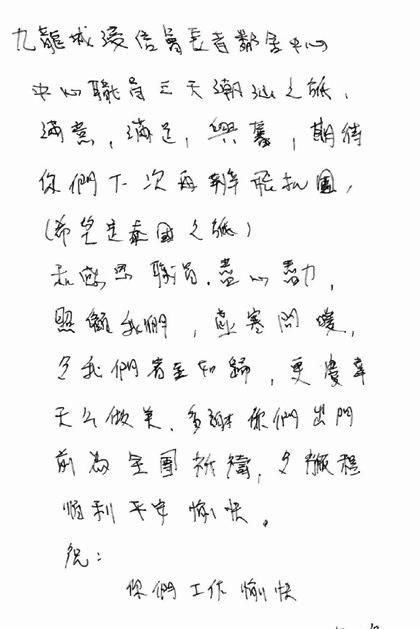 九龍城浸信會長者鄰舍中心
中心職員三天潮汕之旅，
滿意，滿足，興奮，期待
你們下次再辦飛机團，
(希望是泰國之旅)
和感恩職員.盡心盡力，
照顧我們，噓寒問暖，
令我們賓至如歸，更慶幸
天公做美.多謝你們出門
前為全團祈禱，令旅程
順利平安愉快。
祝：
你們工作愉快